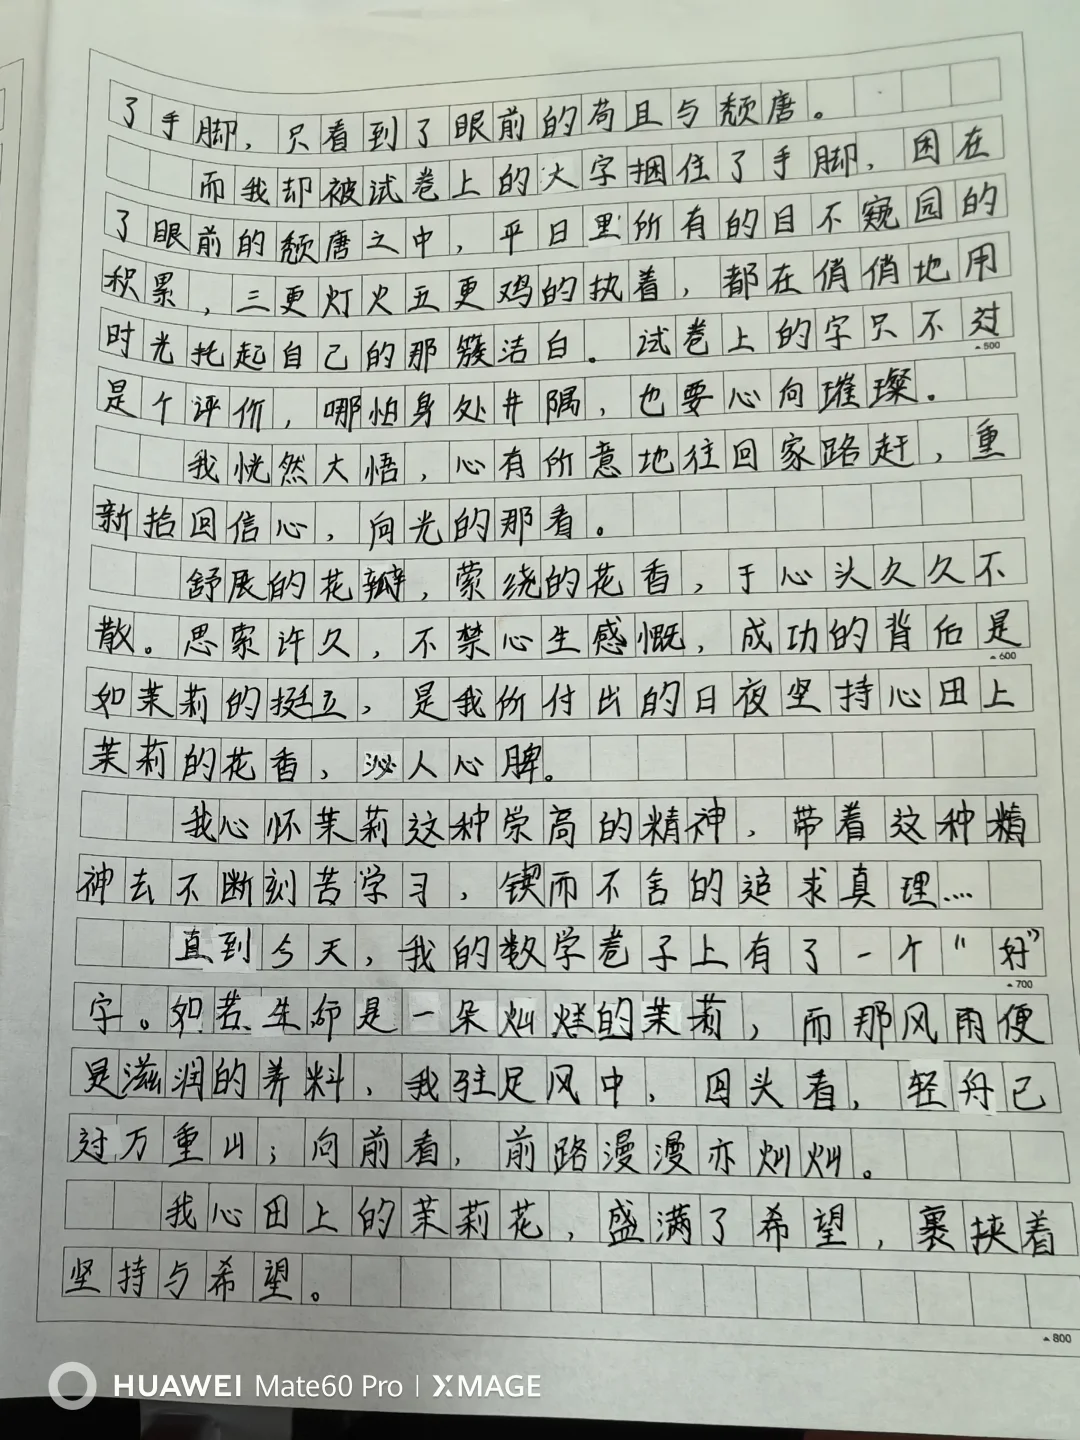 了手脚，只看到了眼前的苟且与颓唐。
而我却被试卷上的大字捆住了手脚，困在
了眼前的颓唐之中，平日里所有的目不窥园的
积累，三更灯火五更鸡的执着，都在俏俏地用
时光托起自己的那簇洁白。试卷上的字只不过
500
是个评价，哪怕身处井隅，也要心向璀璨。
我恍然大悟，心有所意地往回家路赶，重
新拾回信心，向光的那看。
舒展的花瓣，萦绕的花香，于心头久久不
散。思索许久，不禁心生感慨，成功的背后是
600
如茉莉的挺立，是我价付出的日夜坚持心田上
茉莉的花香，沁人心脾。
我心怀茉莉这种崇高的精神，带着这种精
神去不断刻苦学习，锲而不舍的追求真理...
直到今天，我的数学卷子上有了一个“好”
700
字。如若生命是一朵灿烂的茉莉，而那风雨便
是滋润的养料，我驻足风中，回头看，轻舟已
过万重山；向前看，前路漫漫亦灿灿。
我心田上的茉莉花，盛满了希望，裹挟着
坚持与希望。
800
HUAWEI Mate60 Pro | XMAGE